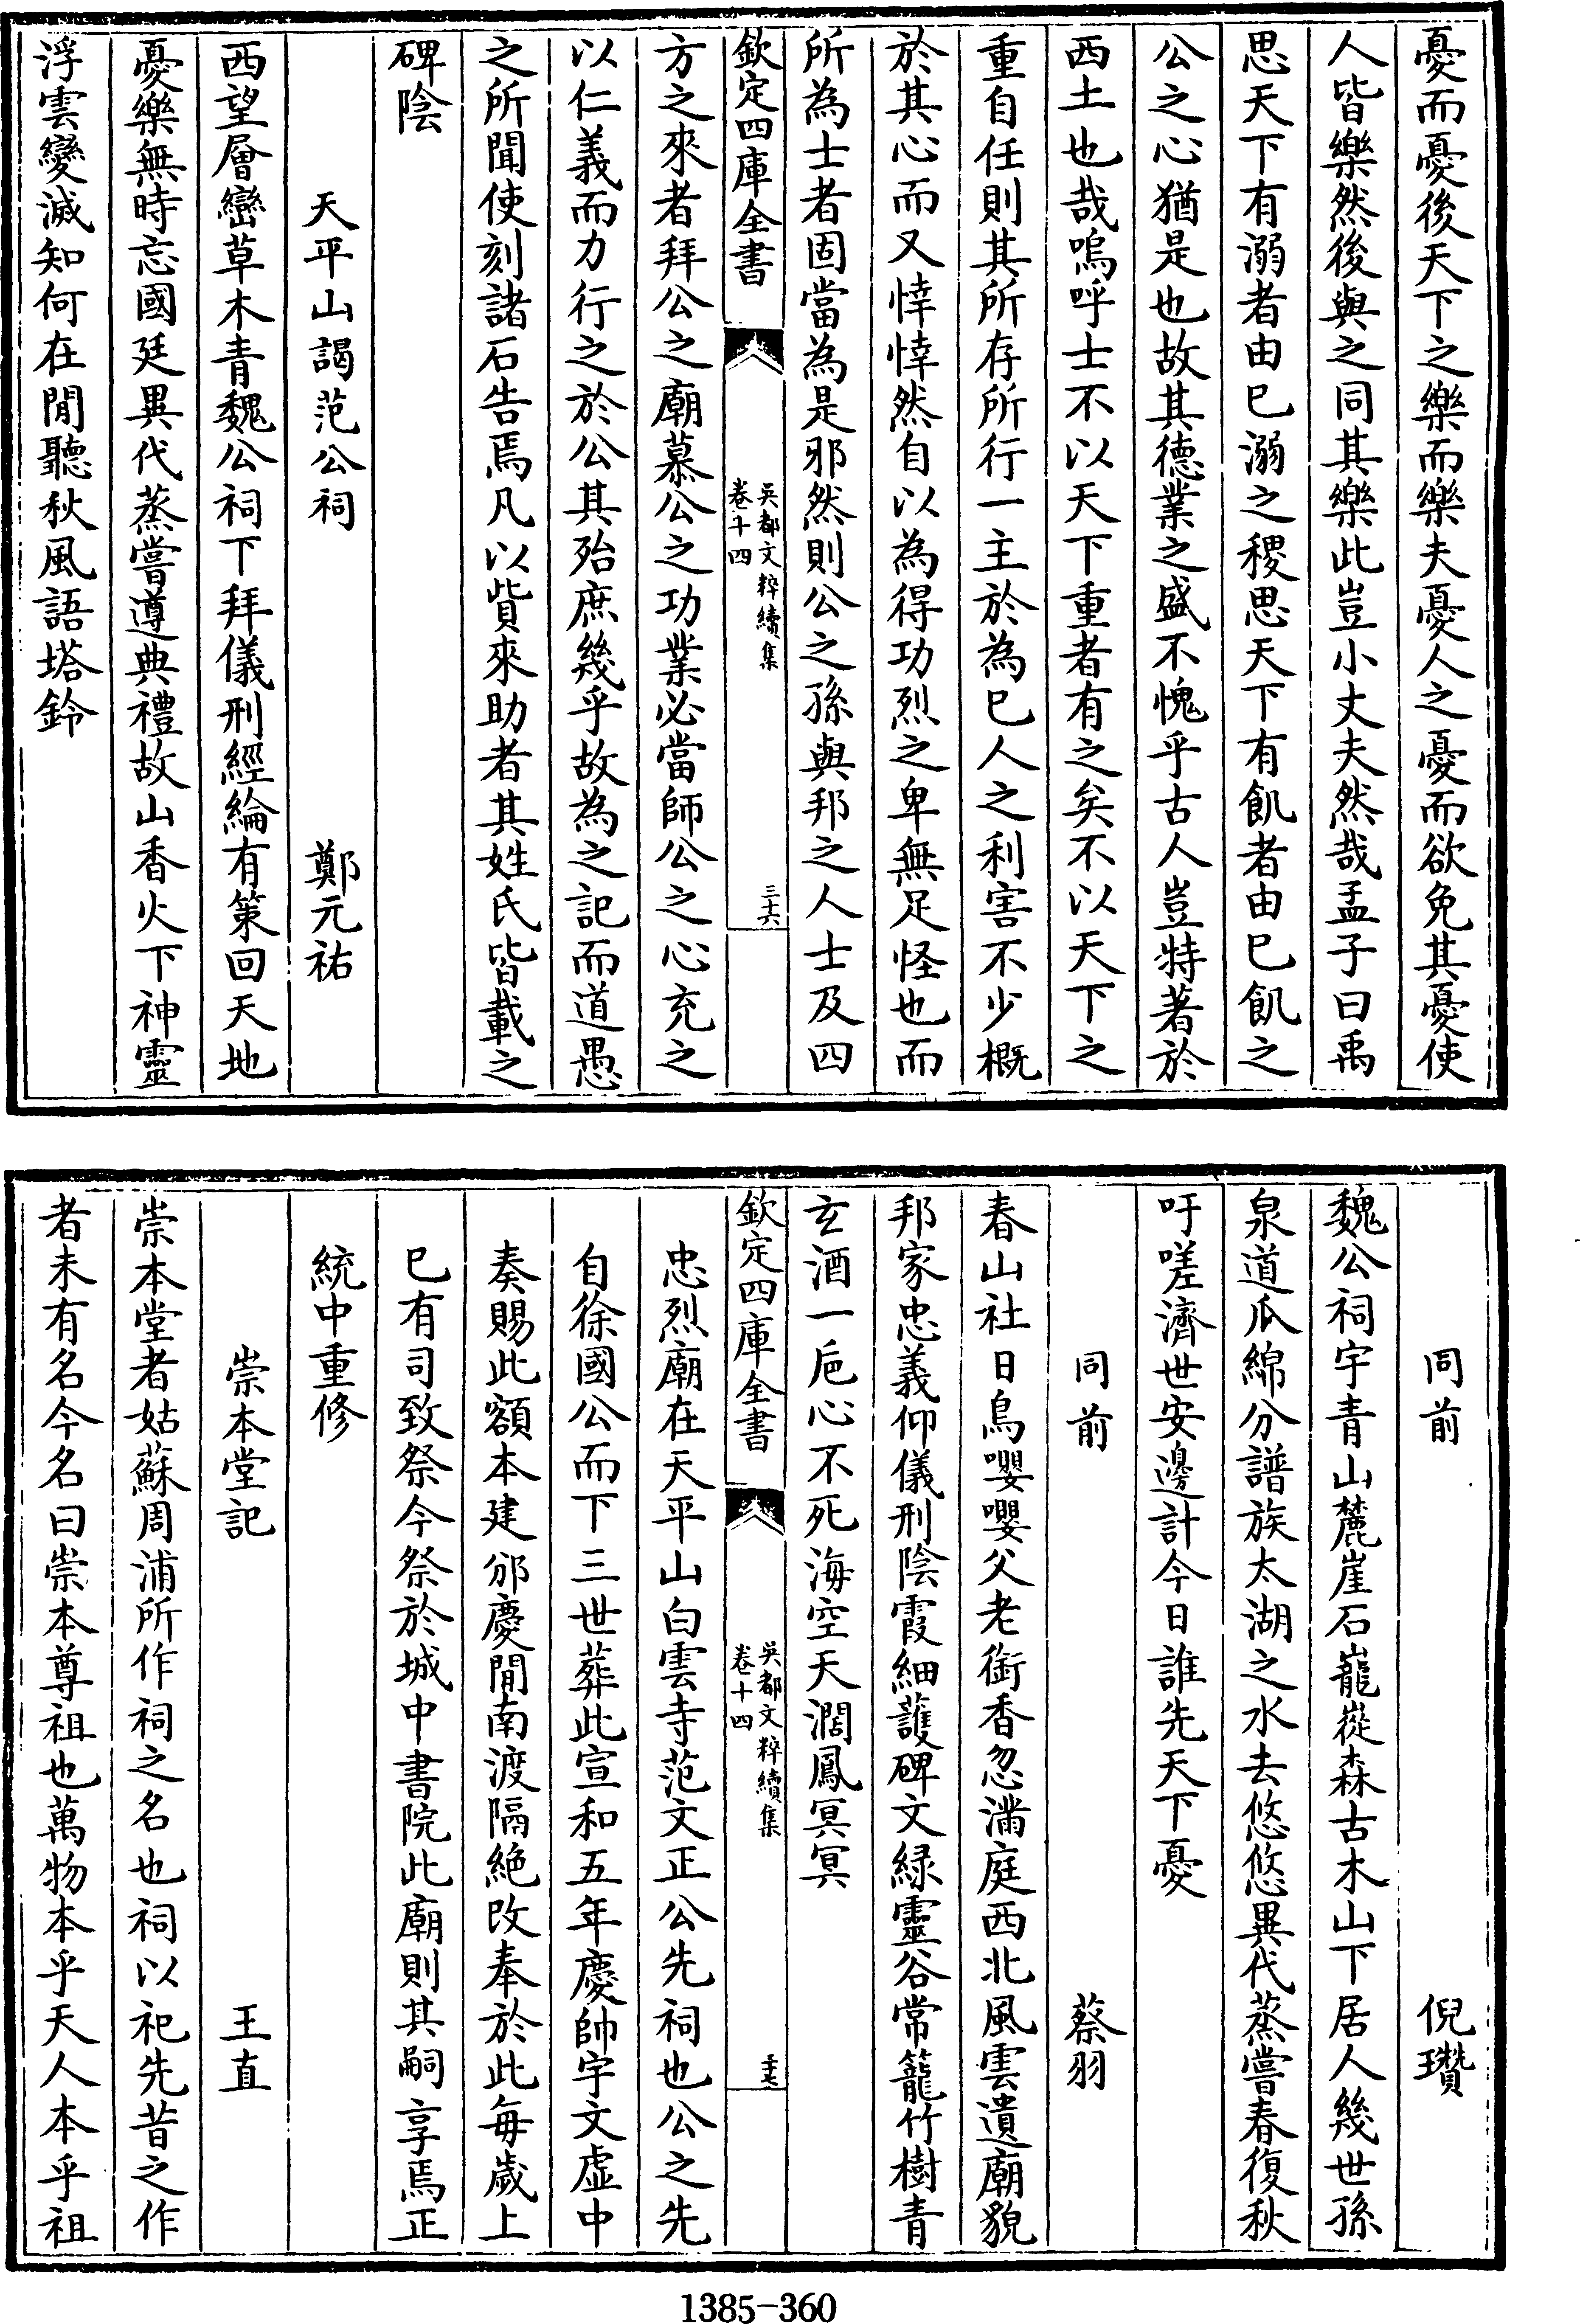 憂而憂後天下之樂而樂夫憂人之憂而欲免其憂使
人皆樂然後與之同其樂此豈小丈夫然哉孟子曰禹
思天下有溺者由巳溺之稷思天下有飢者由巳飢之
公之心猶是也故其德業之盛不愧乎古人豈特著於
西土也哉嗚呼士不以天下重者有之矣不以天下之
重自任則其所存所行一主於為巳人之利害不少概
於其心而又悻悻然自以為得功烈之卑無足怪也而
所為士者固當為是邪然則公之孫與邦之人士及四
欽定四庫全書
吳都文粹續集
卷十四
三十六
方之來者拜公之廟慕公之功業必當師公之心充之
以仁義而力行之於公其殆庶幾乎故為之記而道愚
之所聞使刻諸石告焉凡以貲來助者其姓氏皆載之
碑陰
天平山謁范公祠 鄭元祐
西望層巒草木青魏公祠下拜儀刑經綸有策回天地
憂樂無時忘國廷異代蒸嘗遵典禮故山香火下神靈
浮雲變滅知何在閒聽秋風語塔鈴
同前 倪瓚
魏公祠宇青山麓崖石巃嵸森古木山下居人幾世孫
泉道瓜綿分譜族太湖之水去悠悠異代蒸嘗春復秋
吁嗟濟世安邊計今日誰先天下憂
同前 蔡羽
春山社日鳥嚶嚶父老銜香忽滿庭西北風雲遺廟貌
邦家忠義仰儀刑陰霞細護碑文緑靈谷常籠竹樹青
玄酒一巵心不死海空天濶鳳冥冥
欽定四庫全書
吳都文粹續集
卷十四
三十七
忠烈廟在天平山白雲寺范文正公先祠也公之先
自徐國公而下三世葬此宣和五年慶帥宇文虛中
奏賜此額本建邠慶閒南渡隔絶改奉於此每嵗上
巳有司致祭今祭於城中書院此廟則其嗣享焉正
統中重修
崇本堂記 王直
崇本堂者姑蘇周浦所作祠之名也祠以祀先昔之作
者未有名今名曰崇本尊祖也萬物本乎天人本乎祖
1385-360